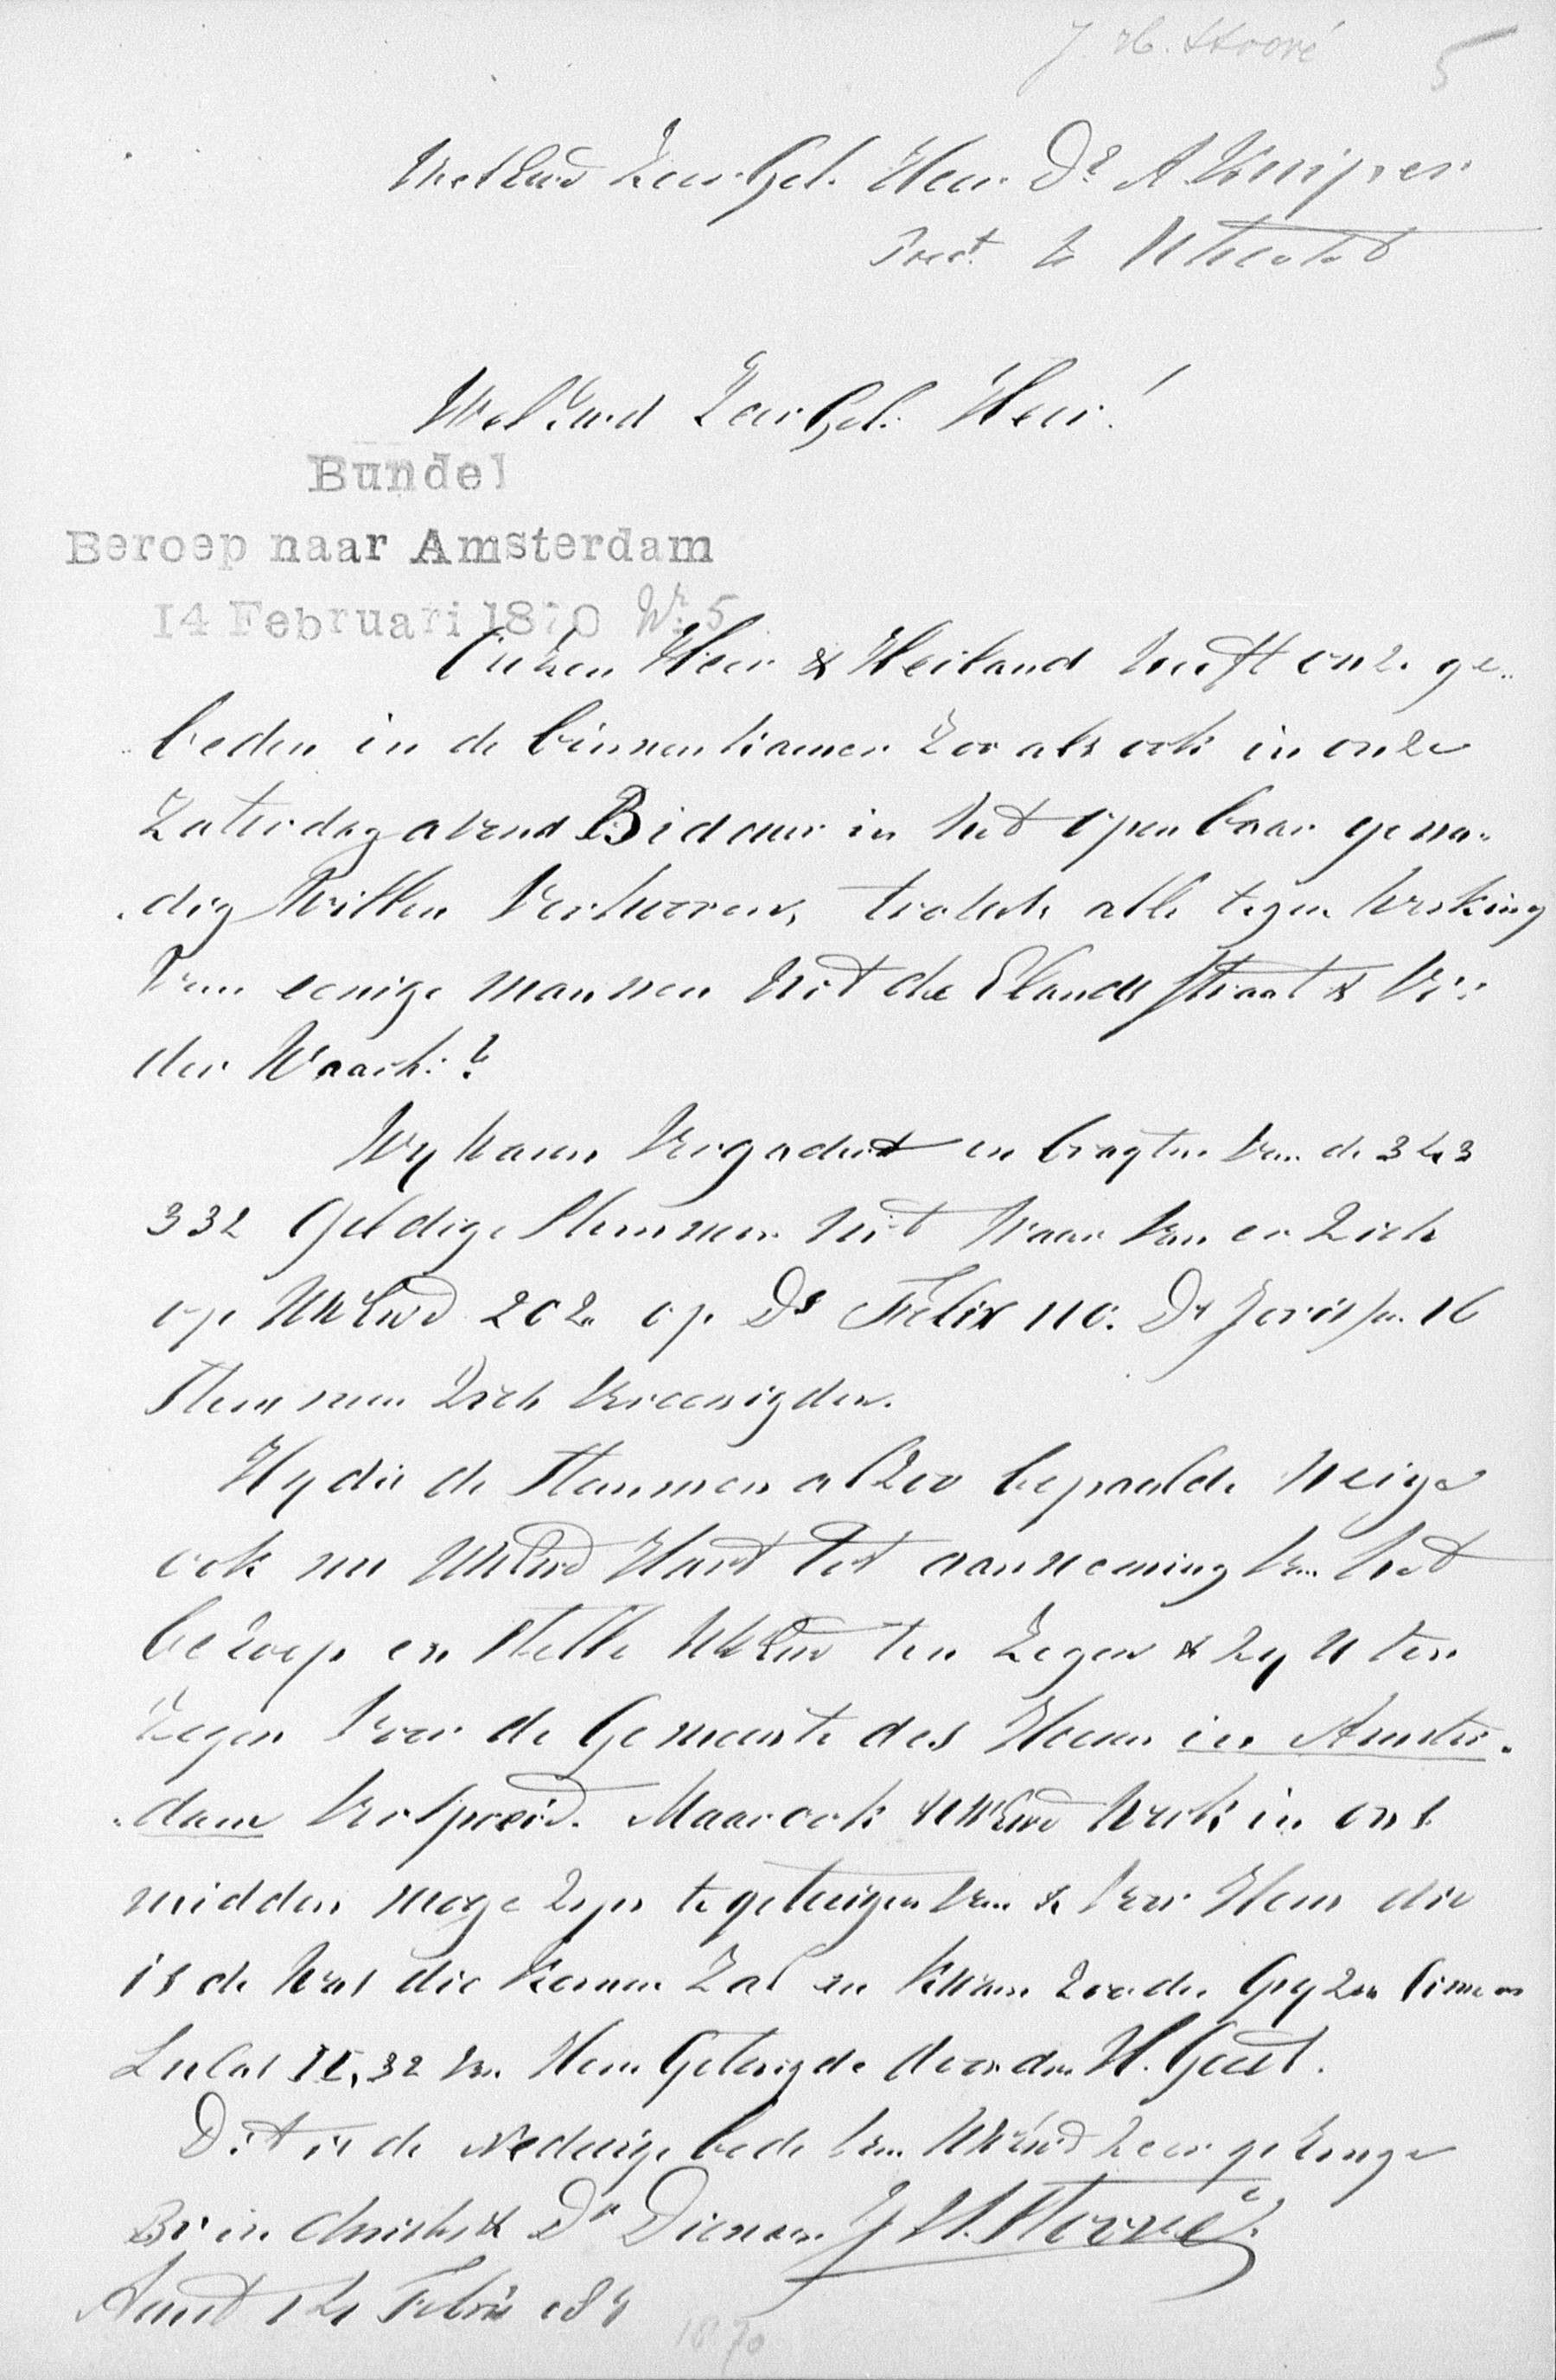 J. H. Stoové 5
WelEerw ZeerGel. Heer Dr A Kuijper
Pred.t te Utrecht
WelEerwd ZeerGel. Heer!
Bundel
Beroep naar Amsterdam
14 Februari 1870 Nr. 5
Onzen Heer & Heiland heeft onze ge-
beden in de binnenkamer zoo als ook in onze
Zaterdag avend Biduur in het openbaar gena-
dig Willen Verhooren, trots alle tegen Werking
Van eenige mannen Uit de Elandsstraat & V.
der Waach.
Wy Waren Vergaderd en bragten Van de 343
332 Geldige Stemmen Uit Waar Van er Zich
op UWEerwd 202 op Ds Felix 110. Ds Jorissen 16
Stemmen Zich Vereenigden.
Hy die de Stemmen alzoo bepaalde Neige
ook nu UWEerwd Hart Tot aanneeming Van het
beroep en Stelle UWEerwd ten Zegen & zy U ten
Zegen Voor de Gemeente des Heeren in Amster-
dam Verspreid. Maar ook UWEerwd Werk in ons
midden moge zyn te getuigen Van & Voor Hem die
is de Was die Komen Zal en Kwam zoo de Gryzen Simeon
Lucas II, 32 Van Hem Getuigde door den H. Geest.
Dit is de Nederige bede Van UWEerwd zeer geringe
Br in Christus & Dw Dienaar J H. Stoové
Amst 14 Febru 187
1870